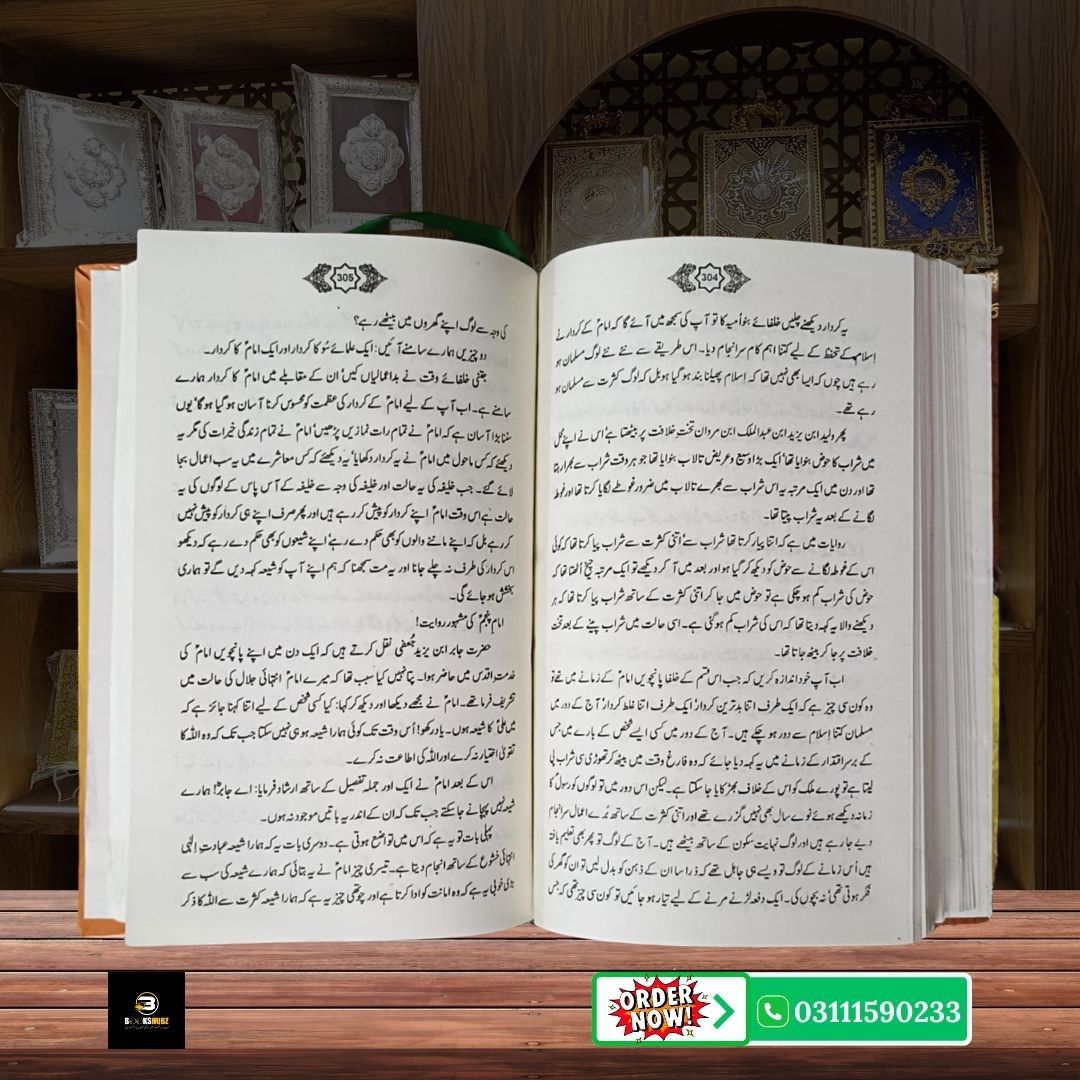 304
یہ کردار دیکھتے چلیں خلفائے بنوامیہ کا تو آپ کی سمجھ میں آئے گا کہ امامؑ کے کردار نے
اسلام کے تحفظ کے لیے کتنا اہم کام سرانجام دیا۔ اس طریقے سے نئے نئے لوگ مسلمان ہو
رہے ہیں چوں کہ ایسا بھی نہیں تھا کہ اسلام پھیلنا بند ہو گیا ہو بل کہ لوگ کثرت سے مسلمان ہو
رہے تھے۔
پھر ولید ابن یزید ابن عبدالملک ابن مروان تختِ خلافت پر بیٹھتا ہے' اس نے اپنے محل
میں شراب کا حوض بنوایا تھا' ایک بڑا وسیع و عریض تالاب بنوایا تھا جو ہر وقت شراب سے بھرا رہتا
تھا اور دن میں ایک مرتبہ یہ اس شراب سے بھرے تالاب میں ضرور غوطے لگایا کرتا تھا اور غوطہ
لگانے کے بعد یہ شراب پیتا تھا۔
روایات میں ہے کہ اتنا پیار کرتا تھا شراب سے' اتنی کثرت سے شراب پیا کرتا تھا کہ کوئی
اس کے غوطہ لگانے سے حوض کو دیکھ کر گیا ہو اور بعد میں آ کر دیکھے تو ایک مرتبہ چیخ اُٹھتا تھا کہ
حوض کی شراب کم ہو چکی ہے تو حوض میں جا کر اتنی کثرت کے ساتھ شراب پیا کرتا تھا کہ ہر
دیکھنے والا یہ کہہ دیتا تھا کہ اس کی شراب کم ہو گئی ہے۔ اسی حالت میں شراب پینے کے بعد تخت
خلافت پر جا کر بیٹھ جاتا تھا۔
اب آپ خود اندازہ کریں کہ جب اس قسم کے خلفا پانچویں امامؑ کے زمانے میں تھے تو
وہ کون سی چیز ہے کہ ایک طرف اتنا بدترین کردار' ایک طرف اتنا غلط کردار' آج کے دور میں
مسلمان کتنا اسلام سے دور ہو چکے ہیں۔ آج کے دور میں کسی ایسے شخص کے بارے میں جس
کے برسراقتدار کے زمانے میں یہ کہہ دیا جائے کہ وہ فارغ وقت میں بیٹھ کر تھوڑی سی شراب پی
لیتا ہے تو پورے ملک کو اس کے خلاف بھڑکایا جا سکتا ہے۔ لیکن اس دور میں تو لوگوں کو رسولؐ کا
زمانہ دیکھے ہوئے نوے سال بھی نہیں گزرے تھے اور اتنی کثرت کے ساتھ بُرے اعمال سرانجام
دیے جا رہے ہیں اور لوگ نہایت سکون کے ساتھ بیٹھے ہیں۔ آج کے لوگ تو پھر بھی تعلیم یافتہ
ہیں' اُس زمانے کے لوگ تو ویسے ہی جاہل تھے کہ ذرا سا ان کے ذہن کو بدل لیں تو ان کو گھر کی
فکر ہوتی تھی' نہ بچوں کی۔ ایک دفعہ لڑنے مرنے کے لیے تیار ہو جائیں تو کون سی چیز تھی کہ جس
305
کی وجہ سے لوگ اپنے گھروں میں بیٹھے رہے؟
دو چیزیں ہمارے سامنے آئیں: ایک علمائے سُو کا کردار اور ایک امامؑ کا کردار۔
جتنی خلفائے وقت نے بداعمالیاں کیں' اُن کے مقابلے میں امامؑ کا کردار ہمارے
سامنے ہے۔ اب آپ کے لیے امامؑ کے کردار کی عظمت کو محسوس کرنا آسان ہو گیا ہو گا' یوں
سننا بڑا آسان ہے کہ امامؑ نے تمام رات نمازیں پڑھیں' امامؑ نے تمام زندگی خیرات کی مگر یہ
دیکھئے کہ کس ماحول میں امامؑ نے یہ کردار دکھایا' یہ دیکھئے کہ کس معاشرے میں یہ سب اعمال بجا
لائے گئے۔ جب خلیفہ کی یہ حالت اور خلیفہ کی وجہ سے خلیفہ کے آس پاس کے لوگوں کی یہ
حالت ہے' اس وقت امامؑ اپنے کردار کو پیش کر رہے ہیں اور پھر صرف اپنے ہی کردار کو پیش نہیں
کر رہے بل کہ اپنے ماننے والوں کو بھی حکم دے رہے' اپنے شیعوں کو بھی حکم دے رہے کہ دیکھو
اس کردار کی طرف نہ چلے جانا اور یہ مت سمجھنا کہ ہم اپنے آپ کو شیعہ کہہ دیں گے تو ہماری
بخشش ہو جائے گی۔
امام پنجمؑ کی مشہور روایت!
حضرت جابر ابن یزید جُعفی نقل کرتے ہیں کہ ایک دن میں اپنے پانچویں امامؑ کی
خدمتِ اقدس میں حاضر ہوا۔ پتا نہیں کیا سبب تھا کہ میرے امامؑ انتہائی جلال کی حالت میں
تشریف فرما تھے۔ امامؑ نے مجھے دیکھا اور دیکھ کر کہا: کیا کسی شخص کے لیے اتنا کہنا جائز ہے کہ
میں علیؑ کا شیعہ ہوں۔ یاد رکھو! اُس وقت تک کوئی ہمارا شیعہ ہو ہی نہیں سکتا جب تک کہ وہ اللہ کا
تقویٰ اختیار نہ کرے اور اللہ کی اطاعت نہ کرے۔
اس کے بعد امامؑ نے ایک اور جملہ تفصیل کے ساتھ ارشاد فرمایا: اے جابرؓ! ہمارے
شیعہ نہیں پہچانے جا سکتے جب تک کہ ان کے اندر یہ باتیں موجود نہ ہوں۔
پہلی بات تو یہ ہے کہ اس میں تواضع ہوتی ہے۔ دوسری بات یہ کہ ہمارا شیعہ عبادتِ الٰہی
انتہائی خشوع کے ساتھ انجام دیتا ہے۔ تیسری چیز امامؑ نے یہ بتائی کہ ہمارے شیعہ کی سب سے
بڑی خوبی یہ ہے کہ وہ امانت کو ادا کرتا ہے اور چوتھی چیز یہ ہے کہ ہمارا شیعہ کثرت سے اللہ کا ذکر
BOOKSHUBZ
ORDER
NOW!
03111590233